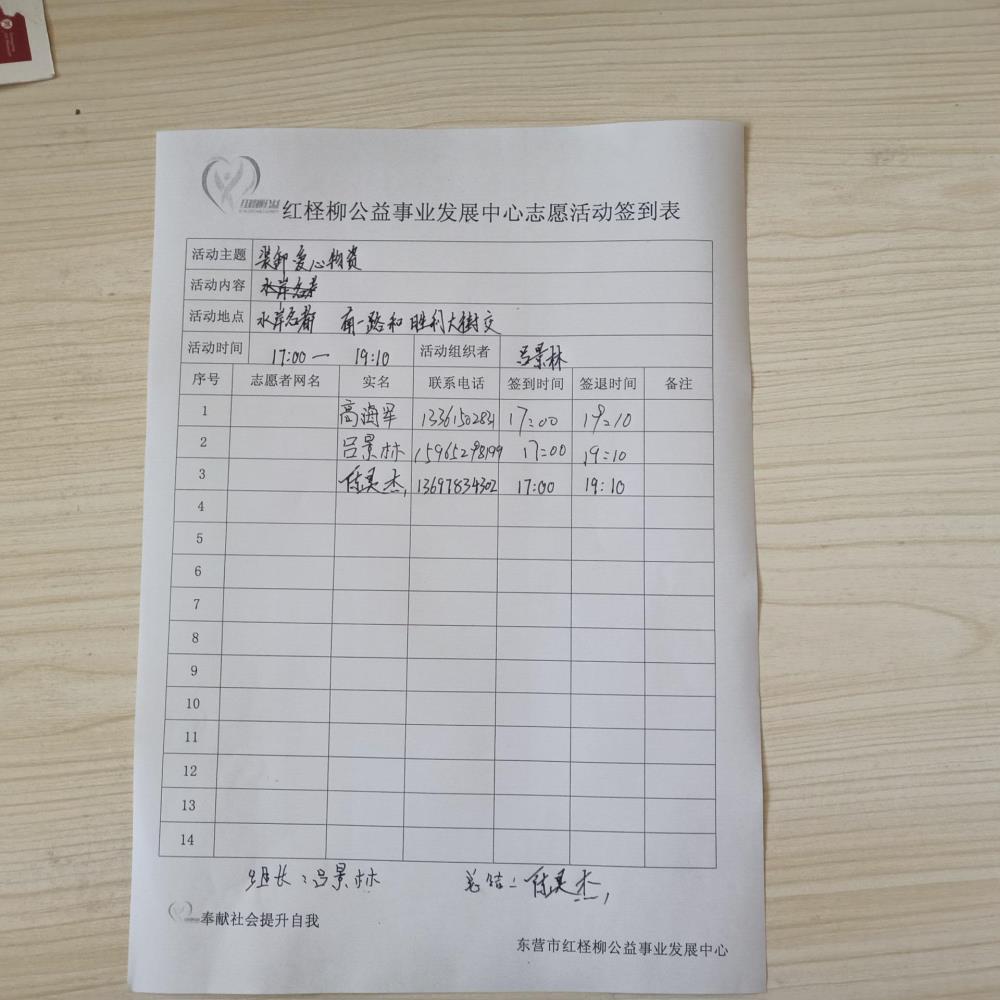 红柽柳公益
红柽柳公益事业发展中心志愿活动签到表
活动主题 装卸爱心物资
活动内容 水岸名都
活动地点 水岸名都 南一路和胜利大街交
活动时间 17:00一 19:10 活动组织者 吕景林
序号 志愿者网名 实名 联系电话 签到时间 签退时间 备注
1 高海军 13361502831 17:00 19:10
2 吕景林 15965298199 17:00 19:10
3 杰 13697834302 17:00 19:10
4
5
6
7
8
9
10
11
12
13
14
组长:吕景林 总结: 杰
奉献社会提升自我
东营市红柽柳公益事业发展中心